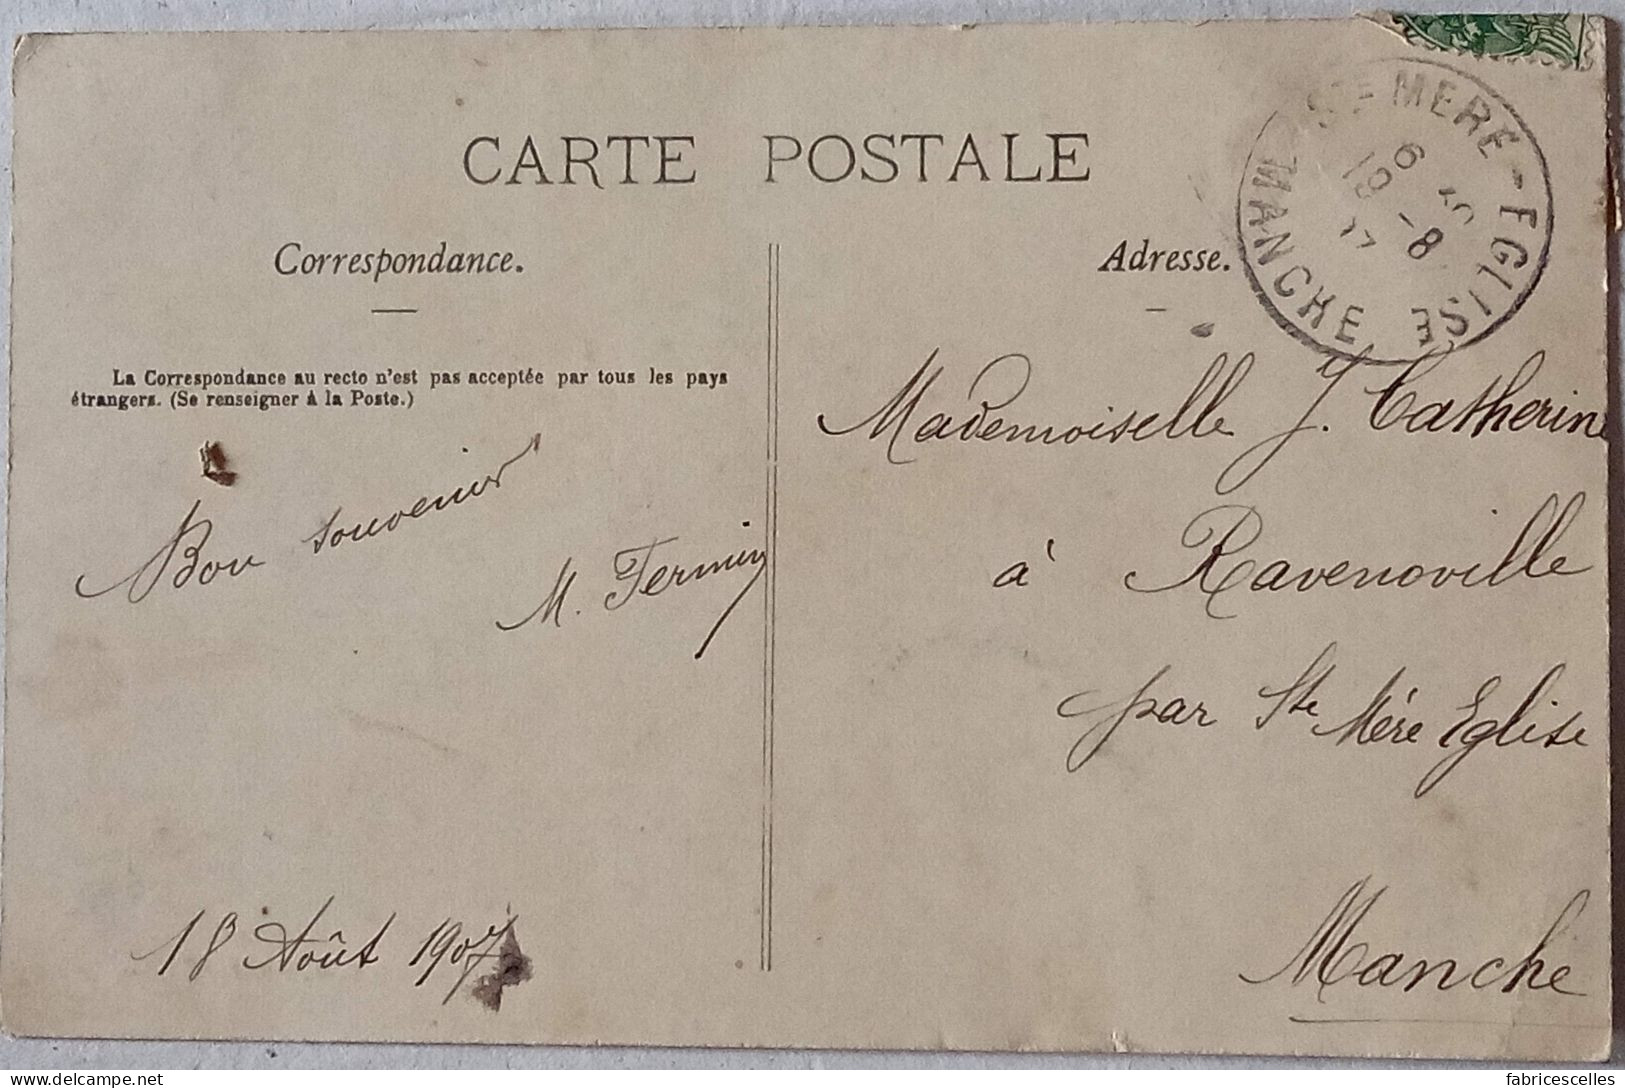 CARTE POSTALE
Correspondance.
La Correspondance au recto n'est pas acceptée par tous les pays
étrangers. (Se renseigner à la Poste.)
Bon souvenir
M. Fermin
18 Août 1907
Adresse.
STE MERE-EGLISE
MANCHE
6
19 -8
Mademoiselle J. Catherine
à Ravenoville
par Ste Mère Eglise
Manche
delcampe.net
fabricescelles